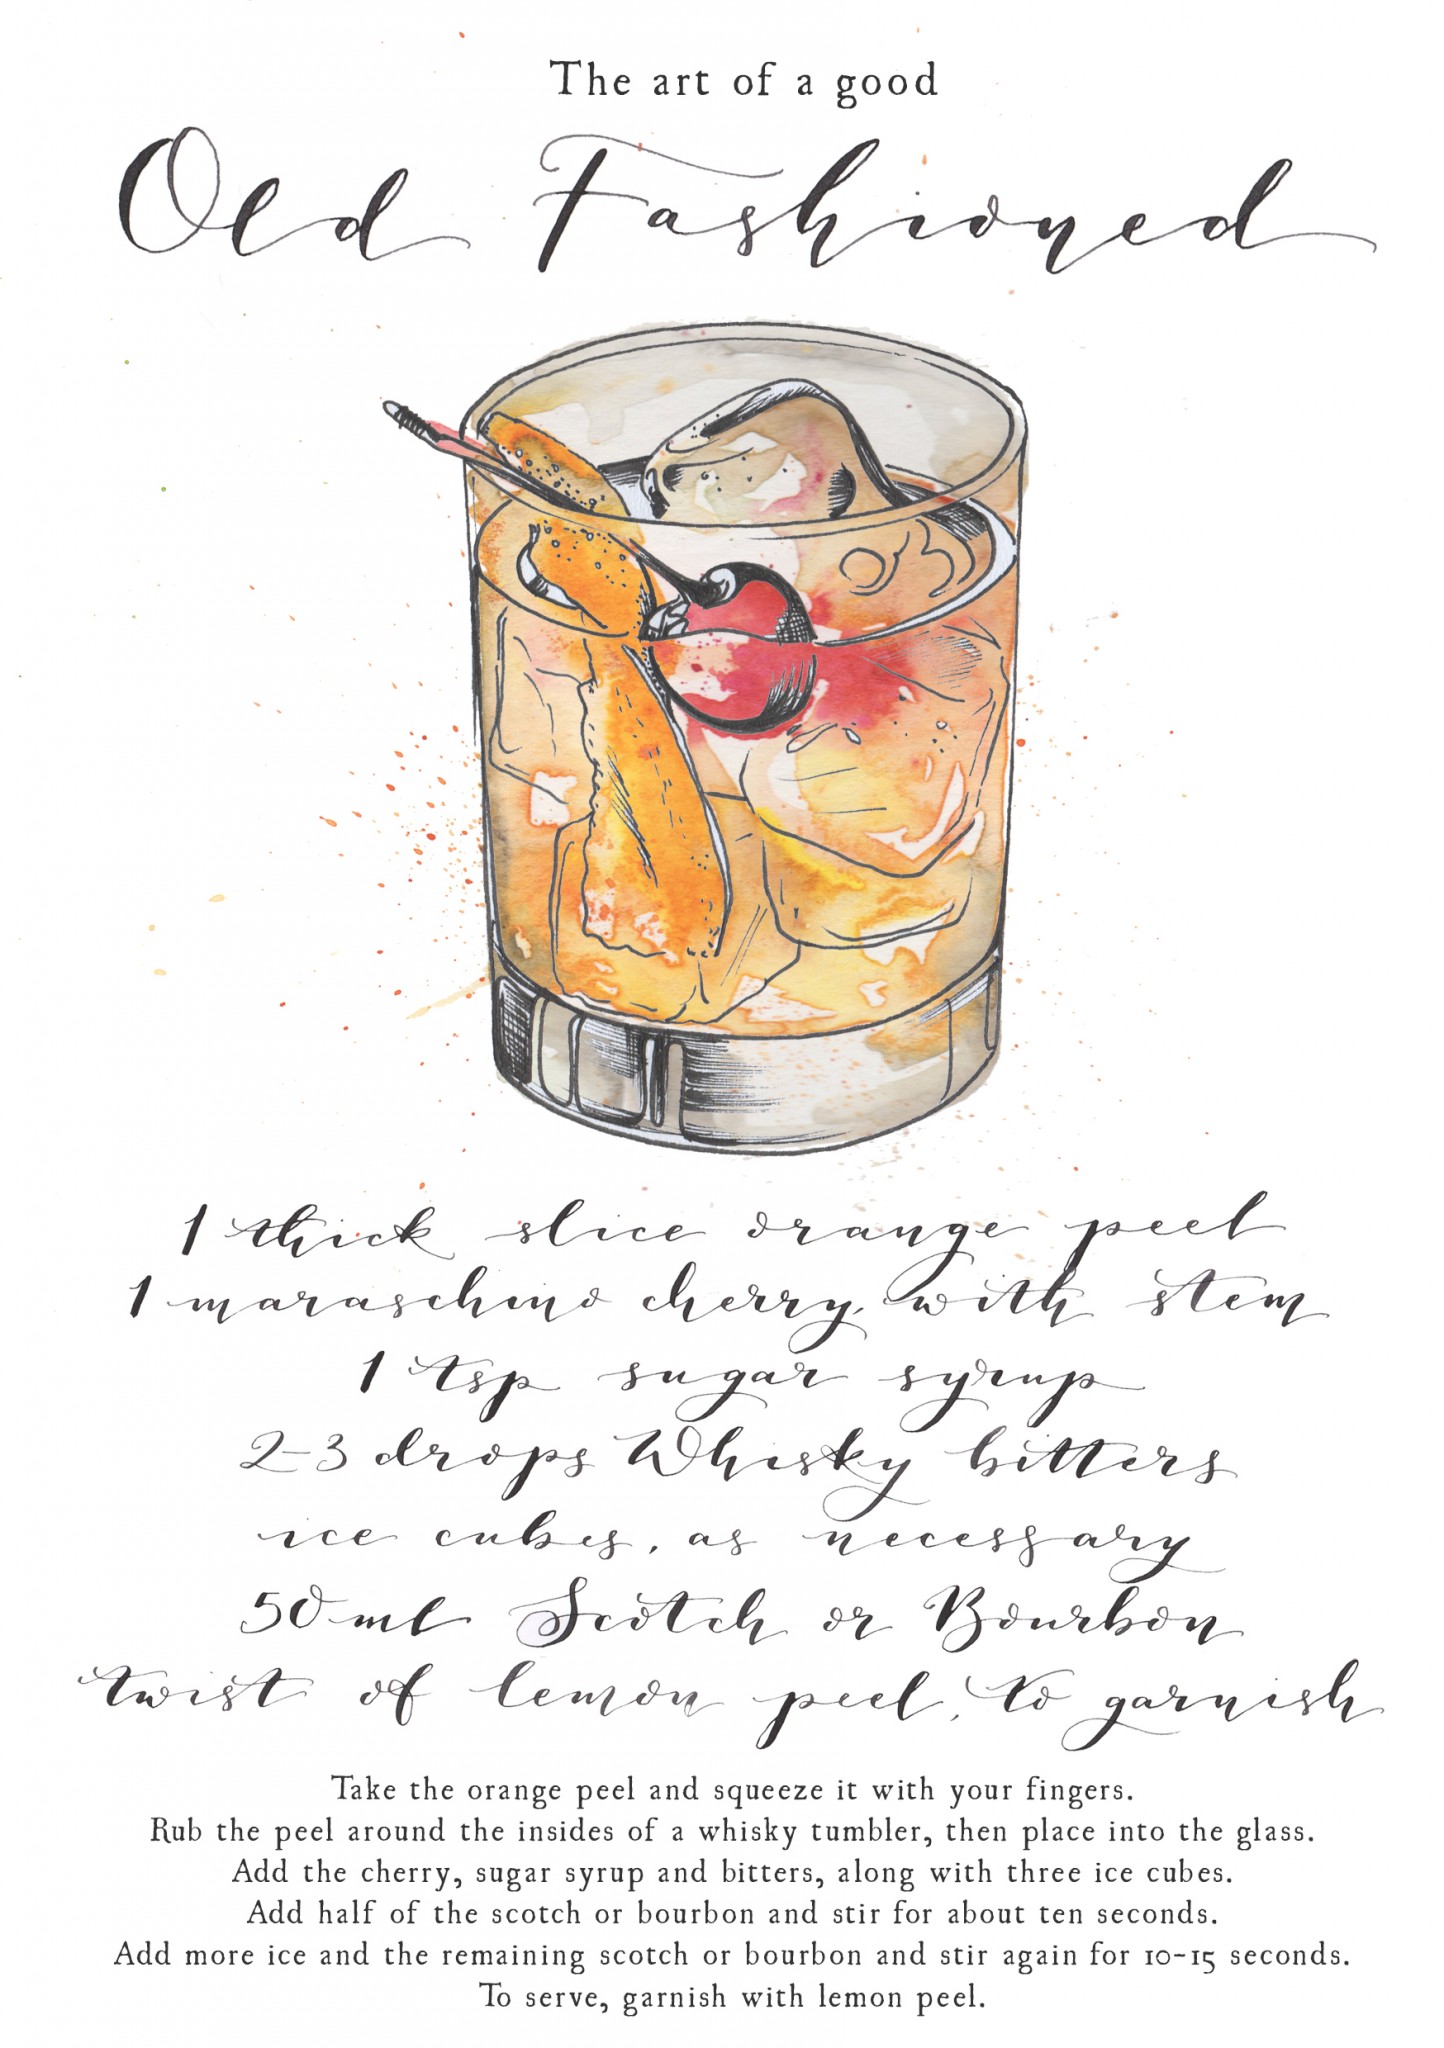 The art of a good
Old Fashioned
1 thick slice orange peel
1 maraschino cherry, with stem
1 tsp sugar syrup
2-3 drops Whisky bitters
ice cubes, as necessary
50ml Scotch or Bourbon
twist of lemon peel, to garnish
Take the orange peel and squeeze it with your fingers.
Rub the peel around the insides of a whisky tumbler, then place into the glass.
Add the cherry, sugar syrup and bitters, along with three ice cubes.
Add half of the scotch or bourbon and stir for about ten seconds.
Add more ice and the remaining scotch or bourbon and stir again for 10-15 seconds.
To serve, garnish with lemon peel.